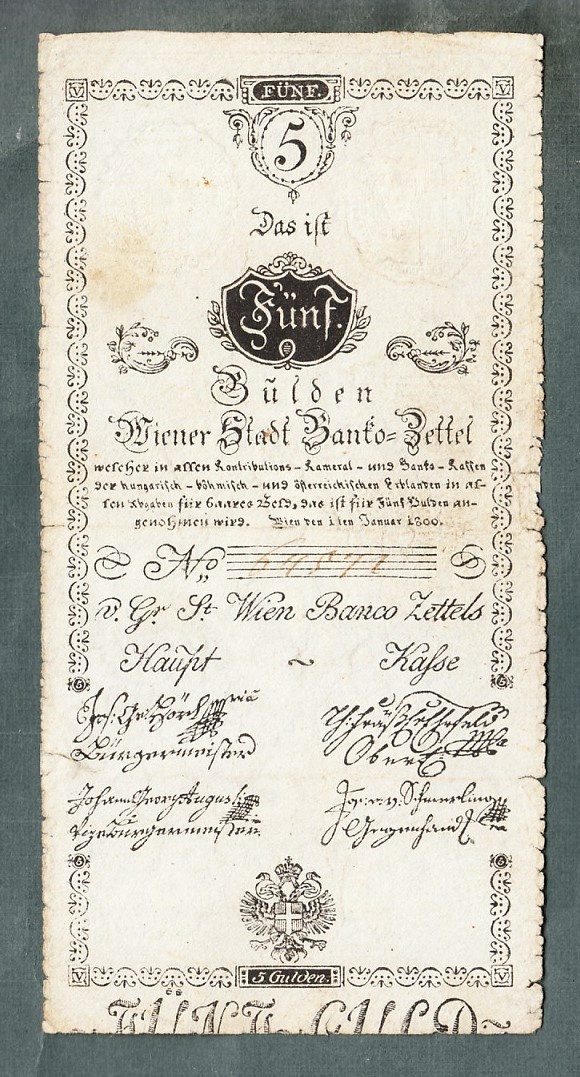 V FÜNF. V
5
Das ist
Fünf.
Gülden
Wiener Stadt Banko=Zettel
welcher in allen Kontributions- Kameral- und Banko-Kassen
der hungarisch- böhmisch- und österreichischen Erblanden in al-
len Abgaben für baares Geld, das ist für Fünf Gulden an-
genohmen wird. Wien den 1ten Januar 1800.
No. 64571
v. Gr. St. Wien Banco Zettels
Haupt ~ Kasse
Bürgermeister
Johann Georg Augusti
Vizebürgermeister
Jos. v. Schmerling
Gegenhandl.
V 5 Gulden. V
FÜNF GULD